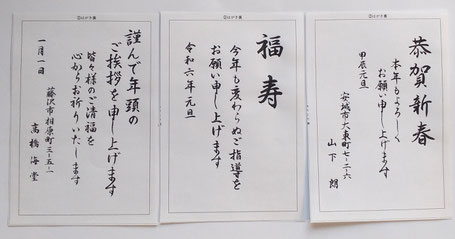 恭賀新春
本年もよろしく
お願い申し上げます
甲辰元旦
安城市大東町七-二-六
山下 朗
福寿
今年も変わらぬご指導を
お願い申し上げます
令和六年元旦
謹んで年頭の
ご挨拶を申し上げます
皆々様のご清福を
心からお祈りいたします
一月一日
藤沢市相原町三-五-一
高橋海堂